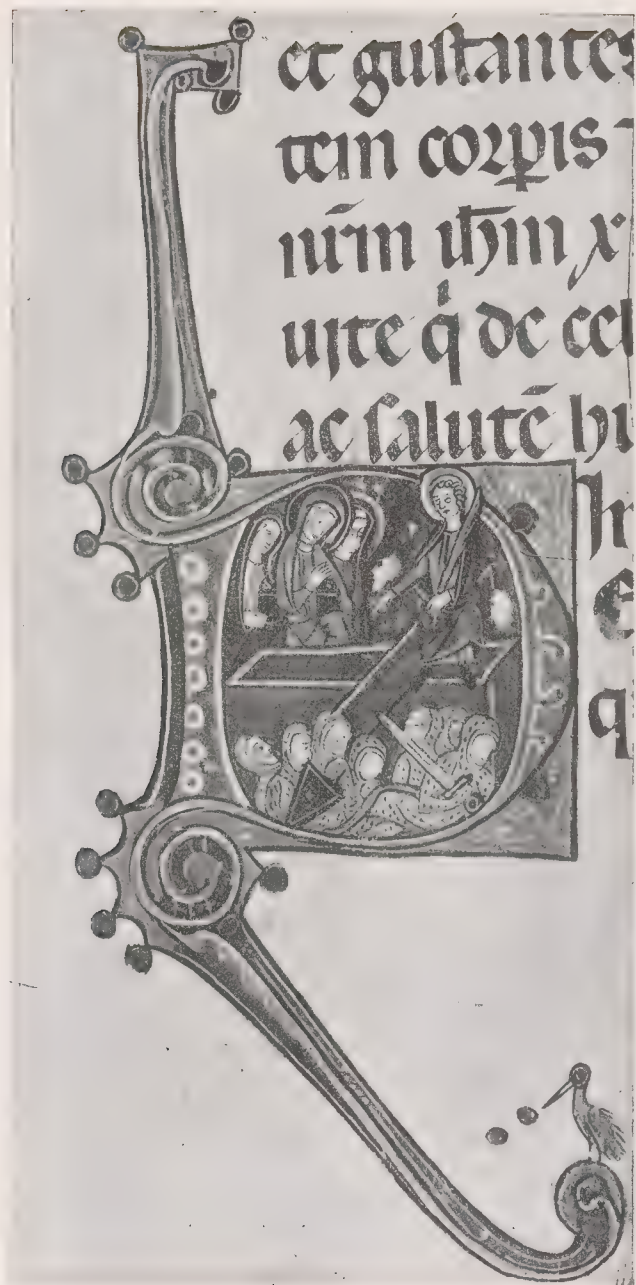 et gustantes
tem corpis
nr̄m ih̄m x
uite qͥ de cel
ac salutē hu